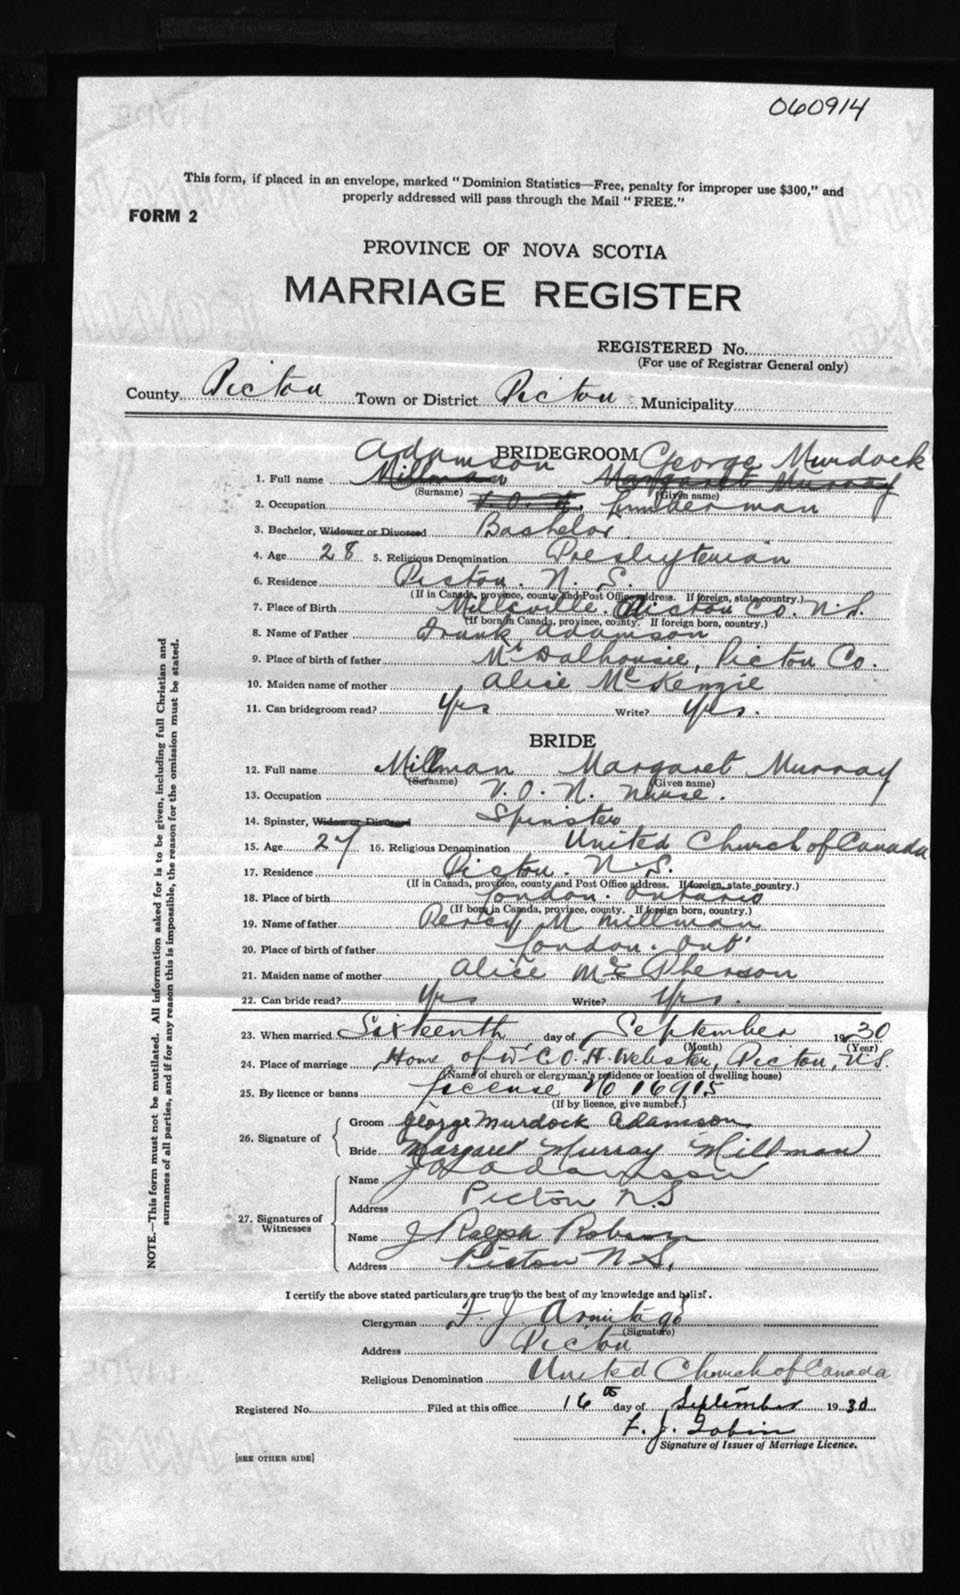 060914
This form, if placed in an envelope, marked "Dominion Statistics—Free, penalty for improper use $300," and
properly addressed will pass through the Mail "FREE."
FORM 2
PROVINCE OF NOVA SCOTIA
MARRIAGE REGISTER
REGISTERED No.
(For use of Registrar General only)
County Pictou Town or District Pictou Municipality
BRIDEGROOM
Adamson George Murdock
1. Full name Millman Margaret Murray
(Surname) (Given name)
2. Occupation V.O.N. Lumberman
3. Bachelor, Widower or Divorced Bachelor
4. Age 28 5. Religious Denomination Presbyterian
6. Residence Pictou. N. S.
(If in Canada, province, county and Post Office address. If foreign, state country.)
7. Place of Birth Millsville. Pictou Co. N.S.
(If born in Canada, province, county. If foreign born, country.)
8. Name of Father Frank Adamson
9. Place of birth of father Mt Dalhousie, Pictou Co.
10. Maiden name of mother Alice McKenzie
11. Can bridegroom read? Yes Write? Yes.
BRIDE
12. Full name Millman Margaret Murray
(Surname) (Given name)
13. Occupation V.O.N. Nurse.
14. Spinster, Widow or Divorced Spinster
15. Age 27 16. Religious Denomination United Church of Canada
17. Residence Pictou. N.S.
(If in Canada, province, county and Post Office address. If foreign, state country.)
18. Place of birth London. Ontario
(If born in Canada, province, county. If foreign born, country.)
19. Name of father Percy M Millman
20. Place of birth of father London. Ont
21. Maiden name of mother Alice McPherson
22. Can bride read? Yes Write? Yes.
23. When married Sixteenth day of September 1930
(Month) (Year)
24. Place of marriage Home of C.O.H. Webster, Pictou, N.S.
(Name of church or clergyman's residence or location of dwelling house)
25. By licence or banns License No 16915
(If by licence, give number.)
26. Signature of Groom George Murdock Adamson
Bride Margaret Murray Millman
27. Signatures of Witnesses
Name Adamson
Address Pictou N.S
Name J Ralph Robson
Address Pictou N.S.
I certify the above stated particulars are true to the best of my knowledge and belief.
Clergyman F. J Armitage
(Signature)
Address Pictou
Religious Denomination United Church of Canada
Registered No. Filed at this office 16 day of September 1930
F. J. Tobin
Signature of Issuer of Marriage Licence.
[SEE OTHER SIDE]
NOTE.—This form must not be mutilated. All information asked for is to be given, including full Christian and
surnames of all parties, and if for any reason this is impossible, the reason for the omission must be stated.